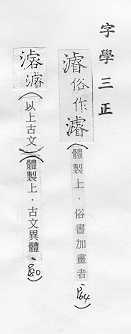 字學三正
濬俗作（體製上．俗書加畫者）
（以上古文）（體製上．古文異體）